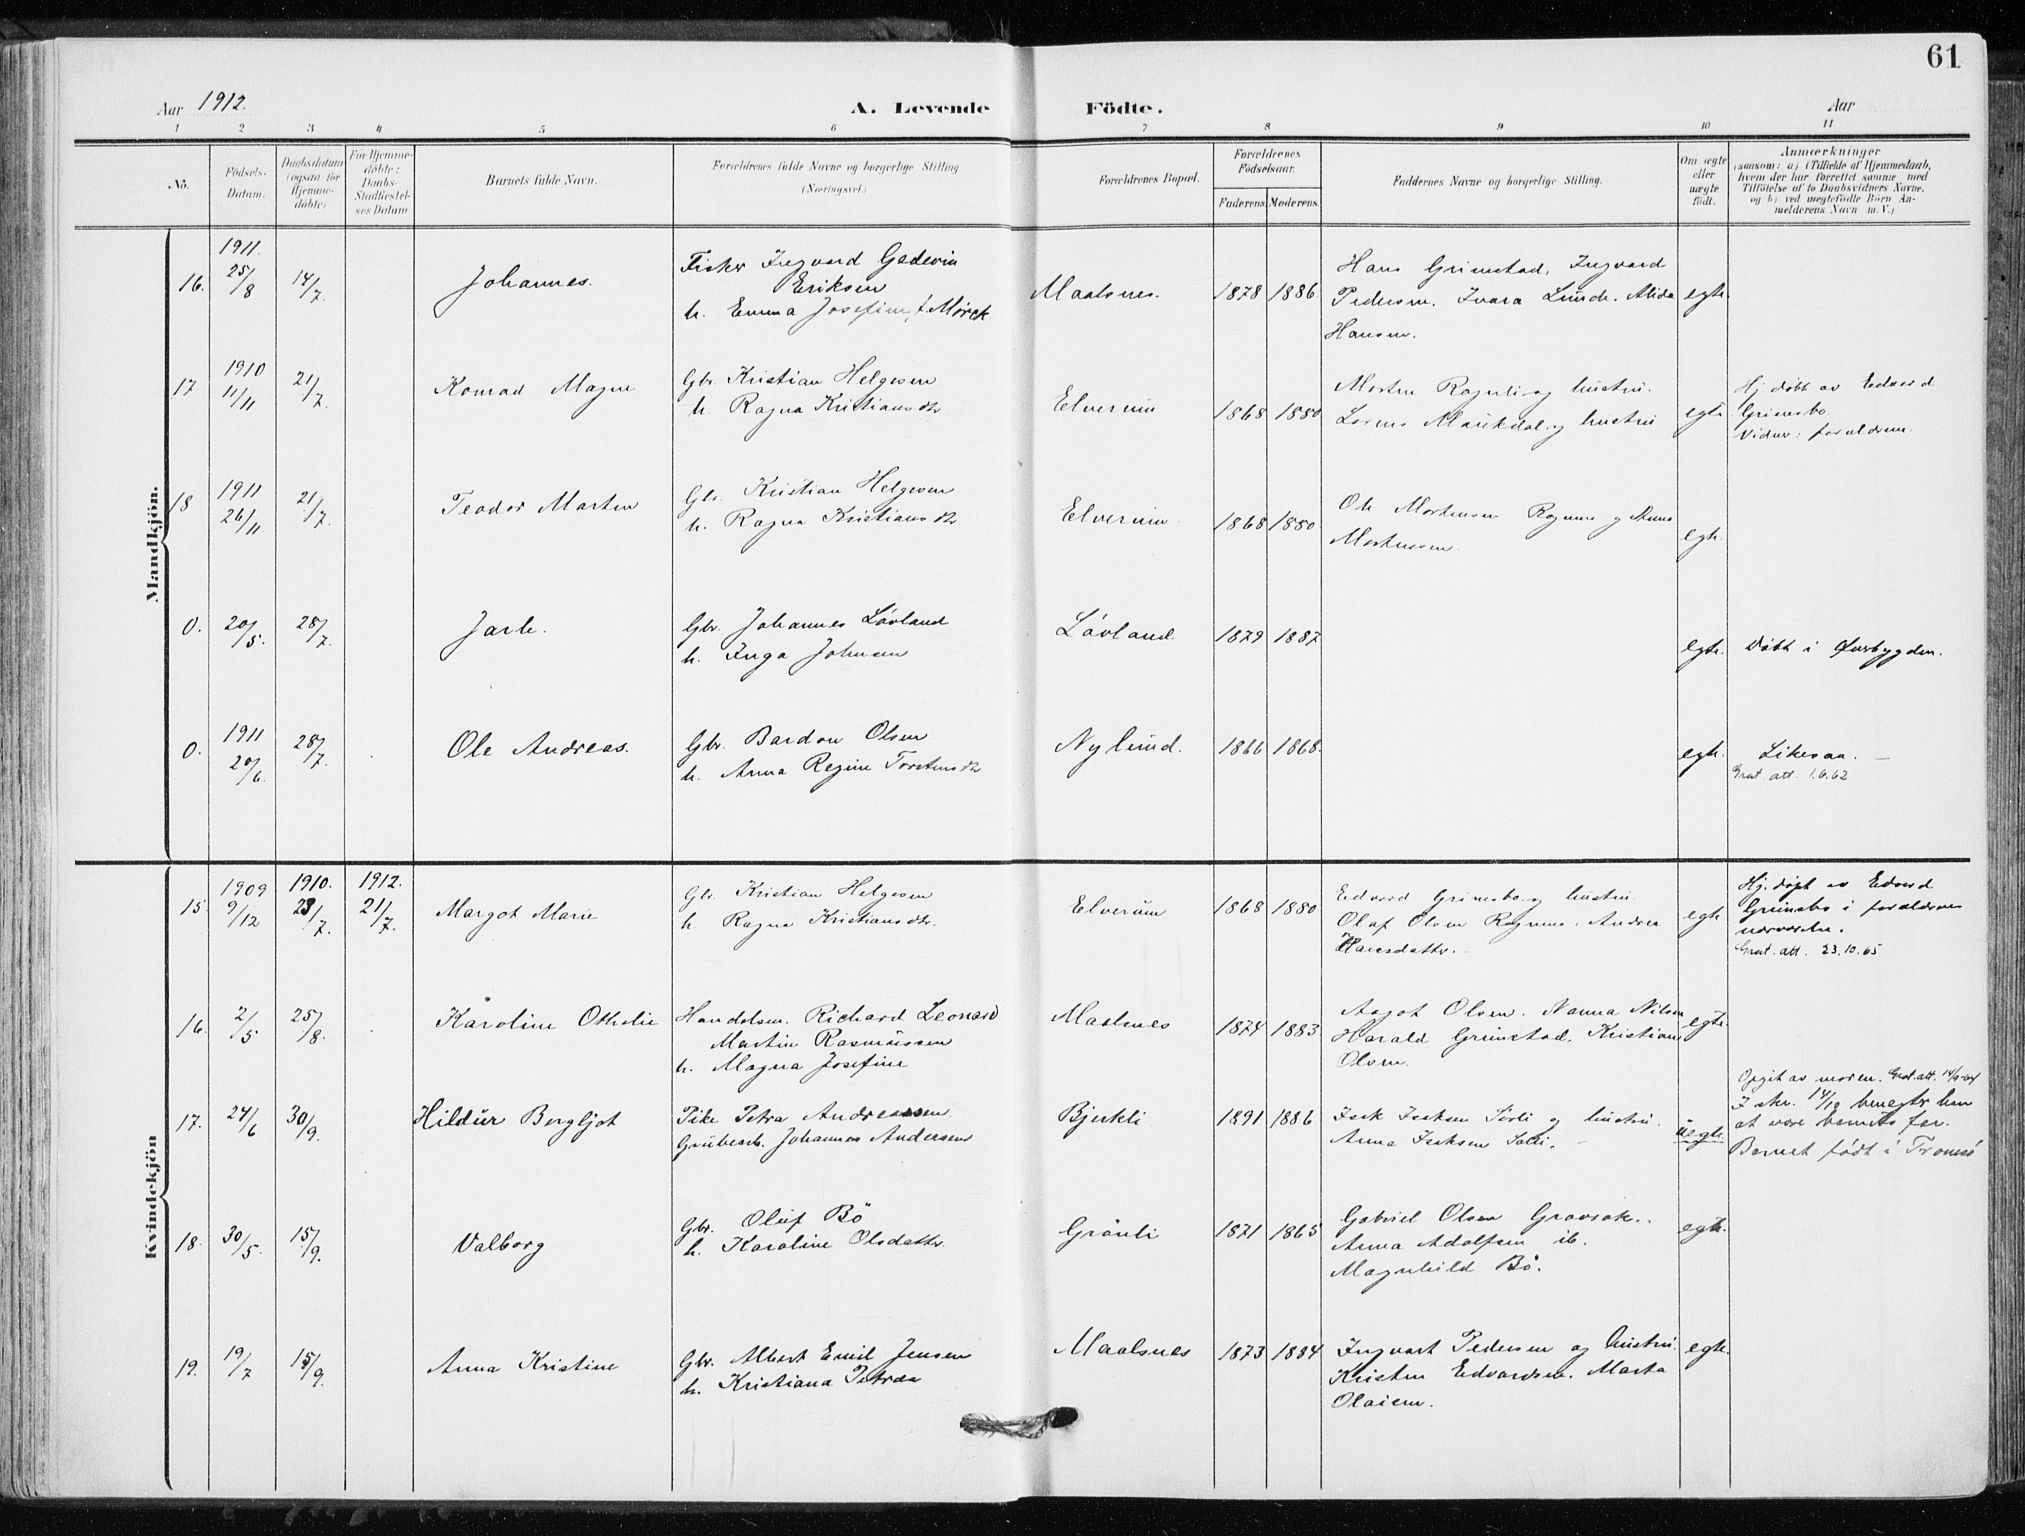 61
Aar 1912.
A. Levende Födte.
Aar
1 2 3 4 5 6 7 8 9 10 11
No.
Födsels-
Datum.
Daabsdatum
(ogsaa for
Hjemme-
döbte)
For Hjemme-
döbte:
Daabs-
Stadfæstel-
ses Datum
Barnets fulde Navn.
Forældrenes fulde Navne og borgerlige Stilling.
(Næringsvei.)
Forældrenes Bopæl.
Forældrenes
Födselsaar.
Faderens. Moderens.
Faddernes Navne og borgerlige Stilling.
Om ægte
eller
uægte
födt.
Anmærkninger
(saasom: a) i Tilfælde af Hjemmedaab,
hvem der har forrettet samme med
Tilföielse af to Daabsvidners Navne.
og b) ved uægtefödte Börn An-
melderens Navn m. V.)
Mandkjön.
16. 1911. 25/8 14/7. Johannes.
Fisker Ingvard Gedevin
Eriksen
h. Emma Josefine f. Mörck
Maalsnes. 1878 1886
Hans Grimstad, Ingvard
Pedersen. Ivara Lunde. Alida
Hansen.
egte.
17 1910 11/11 21/7. Konrad Magne
Gbr. Kristian Helgesen
h. Ragna Kristiansdtr
Elverum 1868 1880
Morten Rognli og hustru.
Lorens Maukdal og hustru
egte
Hj. døbt av Edvard
Grimsbo
Vidner: forældrene.
18 1911 26/11 21/7. Teodor Marten
Gbr. Kristian Helgesen
h. Ragna Kristiansdtr
Elverum. 1868 1880.
Ole Mortensen Rognmo og Anna
Mortensen.
egte.
0. 20/5. 28/7. Jarle.
Gbr. Johannes Løvland
h. Inga Johnsen
Løvland 1879 1887
egte. Døbt i Øverbygden.
0. 1911 20/6. 28/7. Ole Andreas.
Gbr. Bardon Olsen
h. Anna Regine Torstensdtr
Nylund. 1866 1868.
egte. Likesaa. —
Grat. att. 1.6.62
Kvindekjön
15. 1909 9/12 1910. 23/7. 1912. 21/7. Margot Marie
Gbr. Kristian Helgesen
h Ragna Kristiansdtr.
Elverum 1868 1880
Edvard Grimsbo og hustru.
Olaf Olsen Rognmo. Andrea
Hansdatter.
egte
Hj. døpt av Edvard
Grimsbo i forældrenes
nærværelse.
Grat. att. 23.10.65
16. 2/5 25/8. Karoline Othelie
Handelsm. Richard Leonard
Martin Rasmussen
h. Magna Josefine
Maalsnes 1874 1883
Aagot Olsen. Nanna Nilsen
Harald Grimstad, Kristian
Olsen.
egte.
17. 24/6 30/9. Hildur Bergljot
Pike Petra Andreassen.
Grubearb. Johannes Andersen
Bjerkli. 1891 1886
Isak Isaksen Sörli og hustru.
Anna Isaksen
uegte.
Opgit av moren. Grat. att.
I skr. 14/10 benegter han
at være barnets far.
Barnet født i Tromsö
18. 30/5. 15/9. Valborg
Gbr. Oluf Bö
h. Karoline Olsdatter.
Grönli 1871 1865
Gabriel Olsen
Anna Adolfsen ib.
Magnhild Bö.
egte.
19. 19/7 15/9. Anna Kristine
Gbr. Albert Emil Jensen
h. Kristiana Petrea
Maalsnes 1873 1884
Ingvart Pedersen og hustru.
Kristen Edvardsen. Marta
Olaisen.
egte.